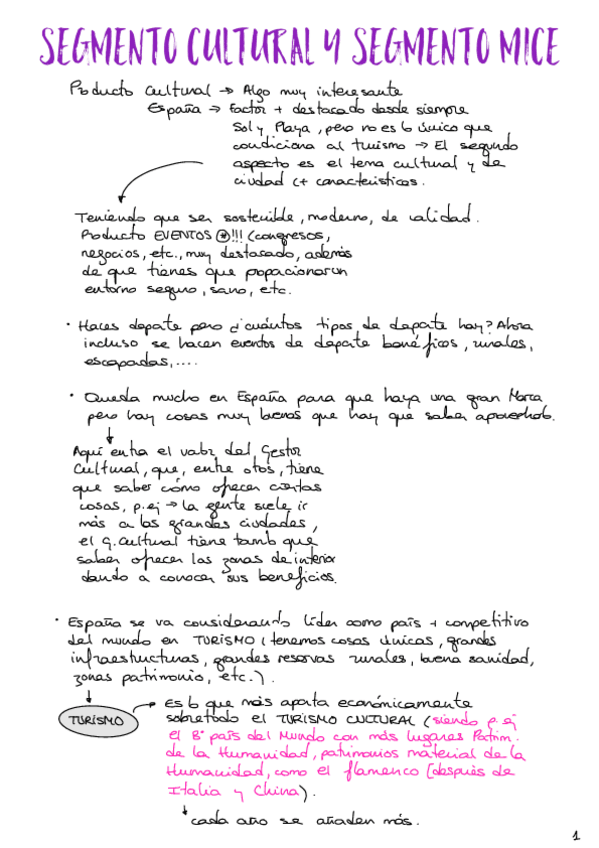 SEGMENTO CULTURAL Y SEGMENTO MICE
Producto cultural → Algo muy interesante
España → Factor + destacado desde siempre
Sol y Playa, pero no es lo único que
condiciona al turismo → El segundo
aspecto es el tema cultural y de
ciudad (+ características.
Teniendo que ser sostenible, moderno, de calidad.
Producto EVENTOS ⊛!!! (congresos,
negocios, etc., muy destacado, además
de que tienes que popacionar un
entorno seguro, sano, etc.
· Haces deporte pero ¿cuántos tipos de deporte hay? Ahora
incluso se hacen eventos de deporte benéficos, rurales,
escapadas,....
· Queda mucho en España para que haya una gran Marca
pero hay cosas muy buenas que hay que saber aprovecharlo.
Aquí entra el valor del Gestor
Cultural, que, entre otros, tiene
que saber cómo ofrecer ciertas
cosas, p.ej → la gente suele ir
más a las grandes ciudades,
el g. cultural tiene tamb que
saber ofrecer las zonas de interior
dando a conocer sus beneficios.
· España se va considerando líder como país + competitivo
del mundo en TURISMO (tenemos cosas únicas, grandes
infraestructuras, grandes reservas rurales, buena sanidad,
zonas patrimonio, etc.).
TURISMO → es lo que más aporta económicamente
sobretodo el TURISMO CULTURAL (siendo p.ej
el 3º país del Mundo con más lugares Patrim.
de la Humanidad, patrimonios material de la
Humanidad, como el flamenco [después de
Italia y China).
cada año se añaden más.
1